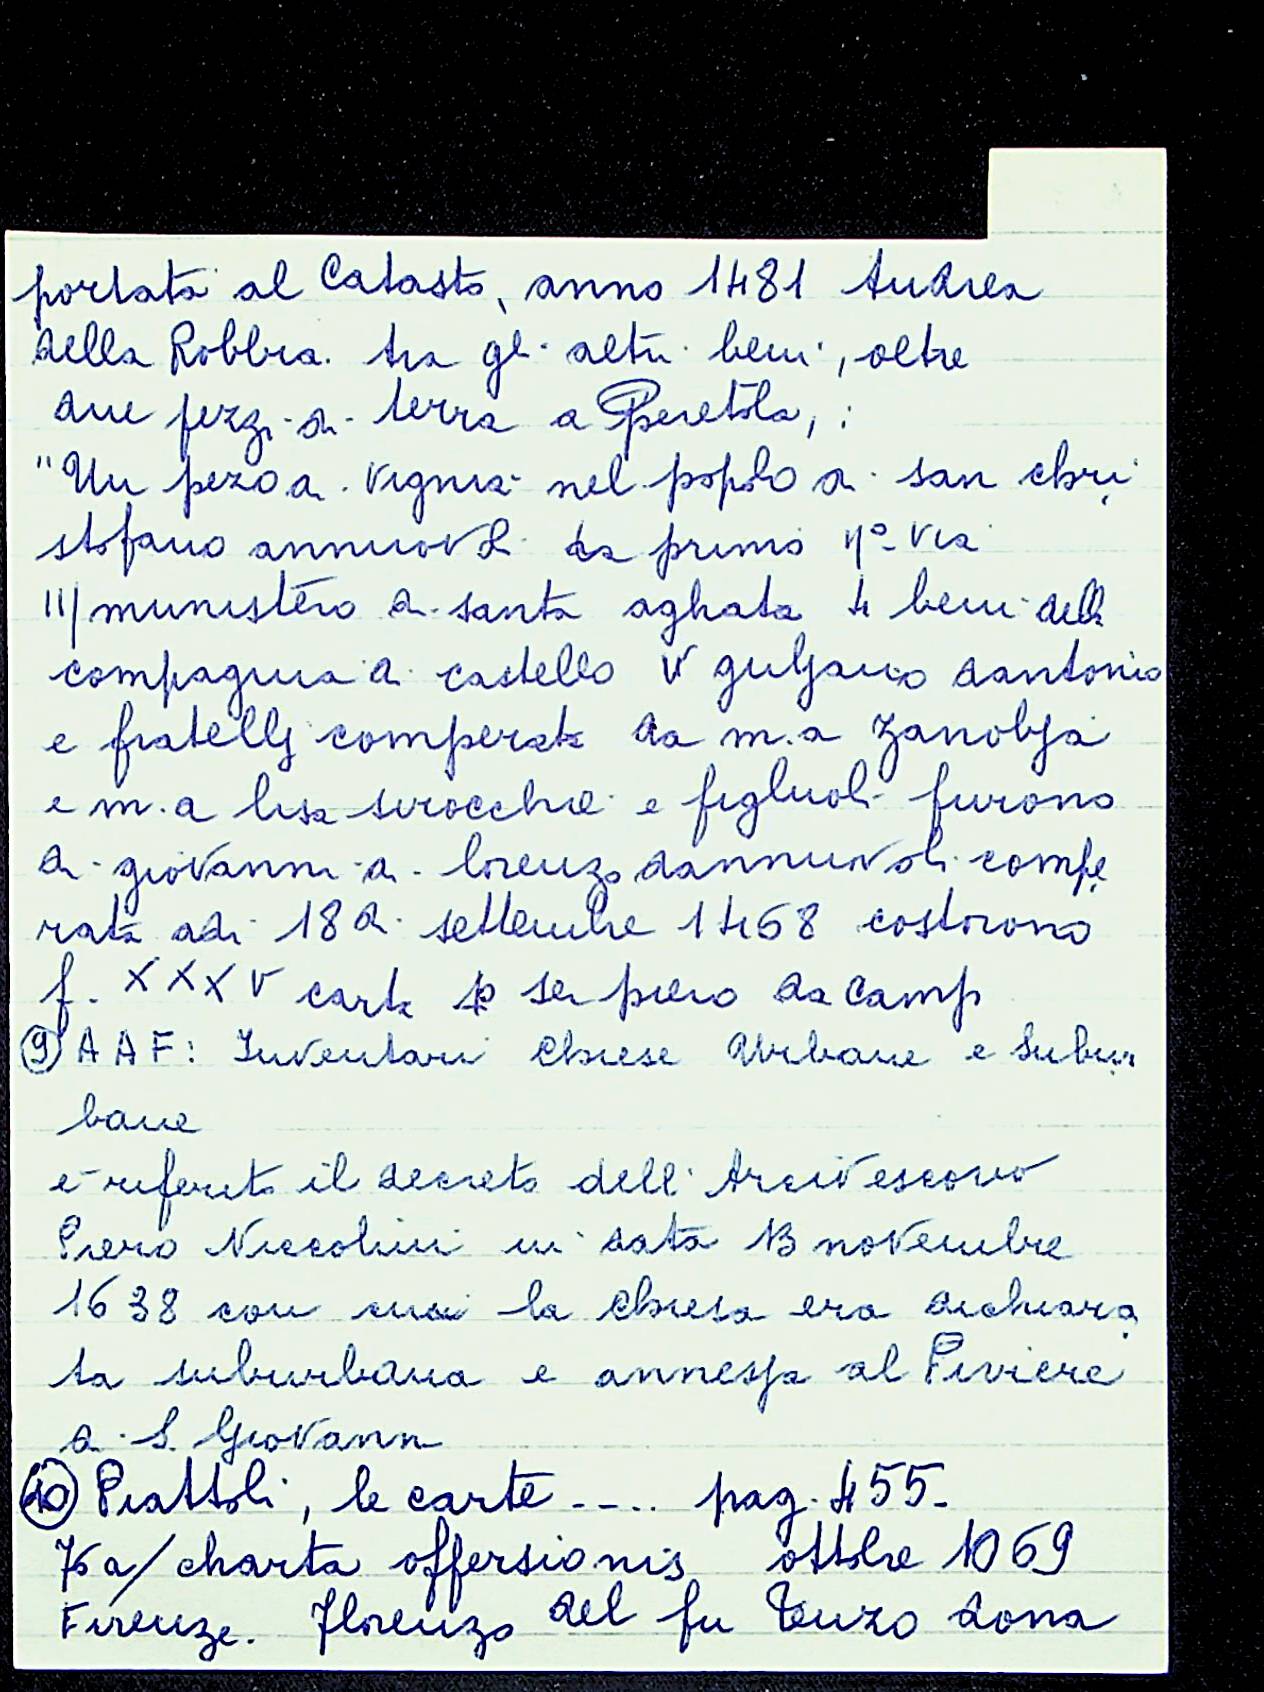 portata al Catasto, anno 1481 Andrea
della Robbia. tra gli altri beni, oltre
due pezzi di terra a Peretola, :
"Un pezo di vignia nel popolo di san chri
stofano annuovoli da primo 1/0 via
III/ munistero di santa aghata 4 beni della
compagnia di castello V guljano dantonio
e fratellj comperata da m.a Zanobja
e m.a lisa sirocchie e figliuoli furono
di giovanni di lorenzo dannuovoli compe
rata adi 18 di settembre 1468 costorono
f. XXXV carta p ser piero da Camp
9 AAF: Inventari Chiese Urbane e Subur
bane
è riferito il decreto dell'Arcivescovo
Piero Niccolini in data 13 novembre
1638 con cui la Chiesa era dichiara
ta suburbana e annessa al Piviere
di S. Giovanni
10 Piattoli, le carte ---.. pag. 455-
/charta offersionis ottobre 1069
Firenze. Florenzo del fu Tenzo dona